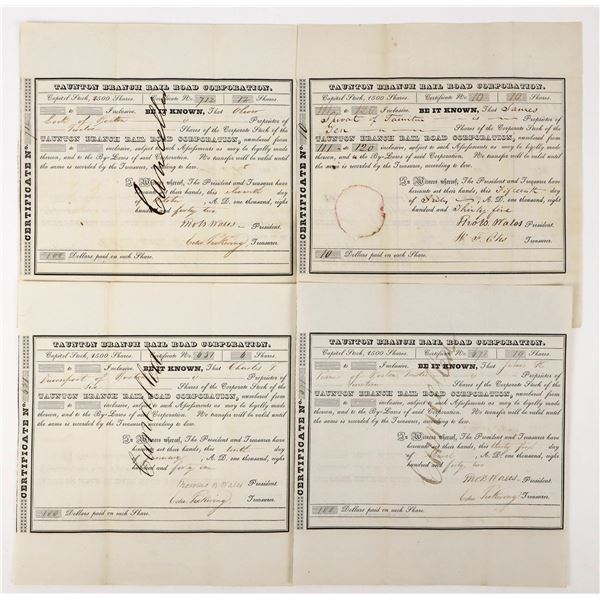 TAUNTON BRANCH RAIL ROAD CORPORATION.
Capitol Stock, 2500 Shares. Certificate No. 712 12 Shares.
to Inclusive. BE IT KNOWN, That Oliver
of Boston Proprietor of
Twelve Shares of the Corporate Stock of the
TAUNTON BRANCH RAIL ROAD CORPORATION, numbered from
to inclusive, subject to such Assessments as may be legally made
thereon, and to the By-Laws of said Corporation. No transfer will be valid until
the same is recorded by the Treasurer, according to law.
In Witness whereof, The President and Treasurer have
hereunto set their hands, this eleventh day
of A. D. one thousand, eight
hundred and forty two
Thos B Wales President.
Treasurer.
100 Dollars paid on each Share.
CERTIFICATE No.
Cancelled
TAUNTON BRANCH RAIL ROAD CORPORATION.
Capitol Stock, 1500 Shares. Certificate No. 10 10 Shares.
111 to 120 Inclusive. BE IT KNOWN, That James
Sproat of Taunton is Proprietor of
Ten Shares of the Corporate Stock of the
TAUNTON BRANCH RAIL ROAD CORPORATION, numbered from
111 to 120 inclusive, subject to such Assessments as may be legally made
thereon, and to the By-Laws of said Corporation. No transfer will be valid until
the same is recorded by the Treasurer, according to law.
In Witness whereof, The President and Treasurer have
hereunto set their hands, this Fifteenth day
of July A. D. one thousand, eight
hundred and Thirty five
Tho. B. Wales President.
Treasurer.
10 Dollars paid on each Share.
CERTIFICATE No. 10
TAUNTON BRANCH RAIL ROAD CORPORATION.
Capitol Stock, 2500 Shares. Certificate No. 631 6 Shares.
to Inclusive. BE IT KNOWN, That Charles F
of Proprietor of
Six Shares of the Corporate Stock of the
TAUNTON BRANCH RAIL ROAD CORPORATION, numbered from
to inclusive, subject to such Assessments as may be legally made
thereon, and to the By-Laws of said Corporation. No transfer will be valid until
the same is recorded by the Treasurer, according to law.
In Witness whereof, The President and Treasurer have
hereunto set their hands, this tenth day
of A. D. one thousand, eight
hundred and forty one
Thomas B Wales President.
Treasurer.
100 Dollars paid on each Share.
CERTIFICATE No.
Cancelled
TAUNTON BRANCH RAIL ROAD CORPORATION.
Capitol Stock, 2500 Shares. Certificate No. 10 Shares.
to Inclusive. BE IT KNOWN, That John
of Boston Proprietor of
Shares of the Corporate Stock of the
TAUNTON BRANCH RAIL ROAD CORPORATION, numbered from
to inclusive, subject to such Assessments as may be legally made
thereon, and to the By-Laws of said Corporation. No transfer will be valid until
the same is recorded by the Treasurer, according to law.
In Witness whereof, The President and Treasurer have
hereunto set their hands, this thirty first day
of A. D. one thousand, eight
hundred and forty two
Thos B Wales President.
Treasurer.
100 Dollars paid on each Share.
CERTIFICATE No.
Cancelled